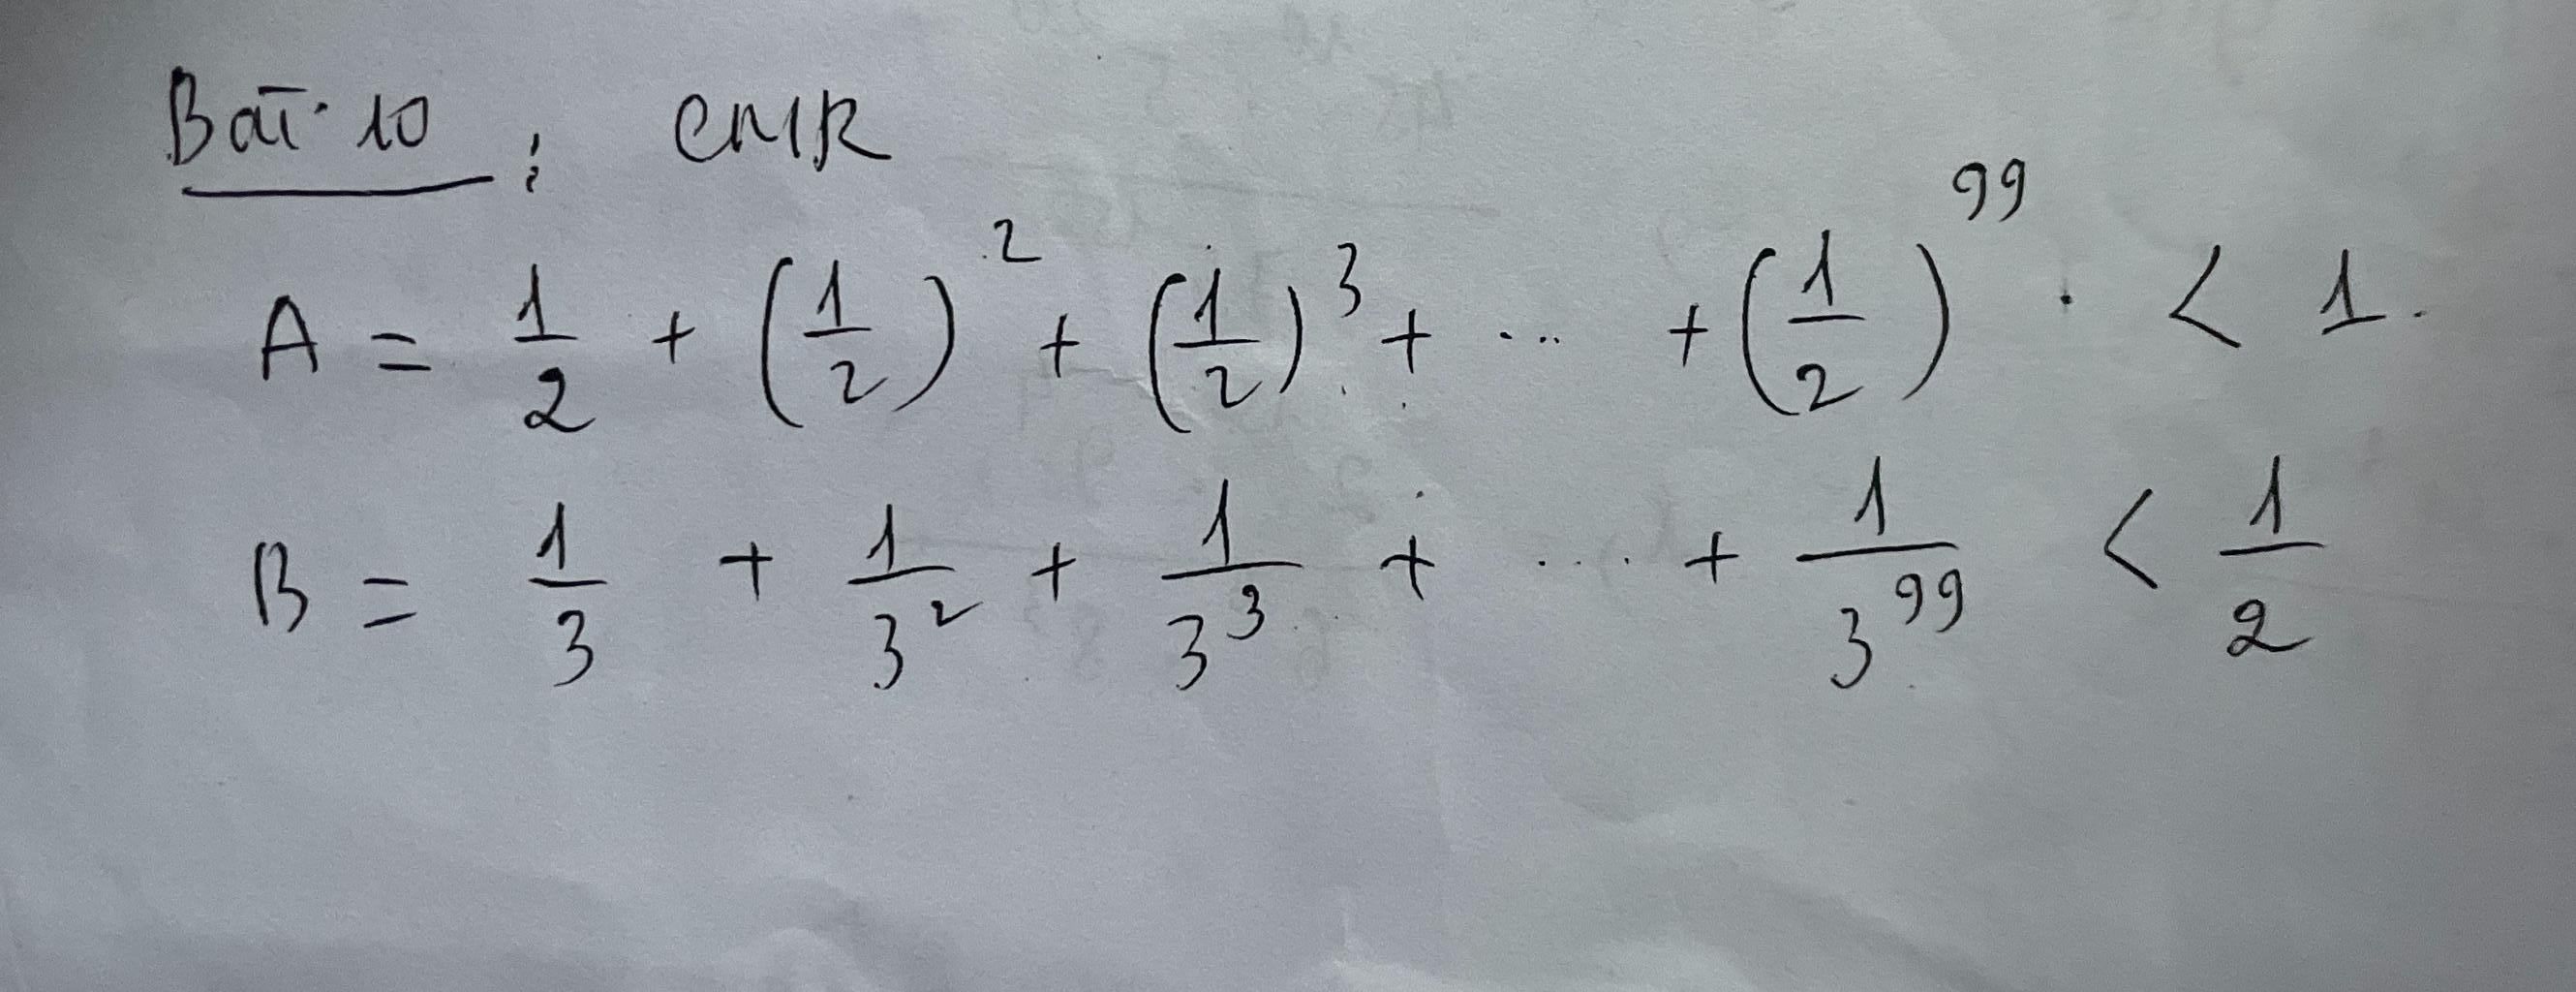 Bài 10 : CMR
A = 1/2 + (1/2)^2 + (1/2)^3 + ... + (1/2)^99 < 1.
B = 1/3 + 1/3^2 + 1/3^3 + ... + 1/3^99 < 1/2